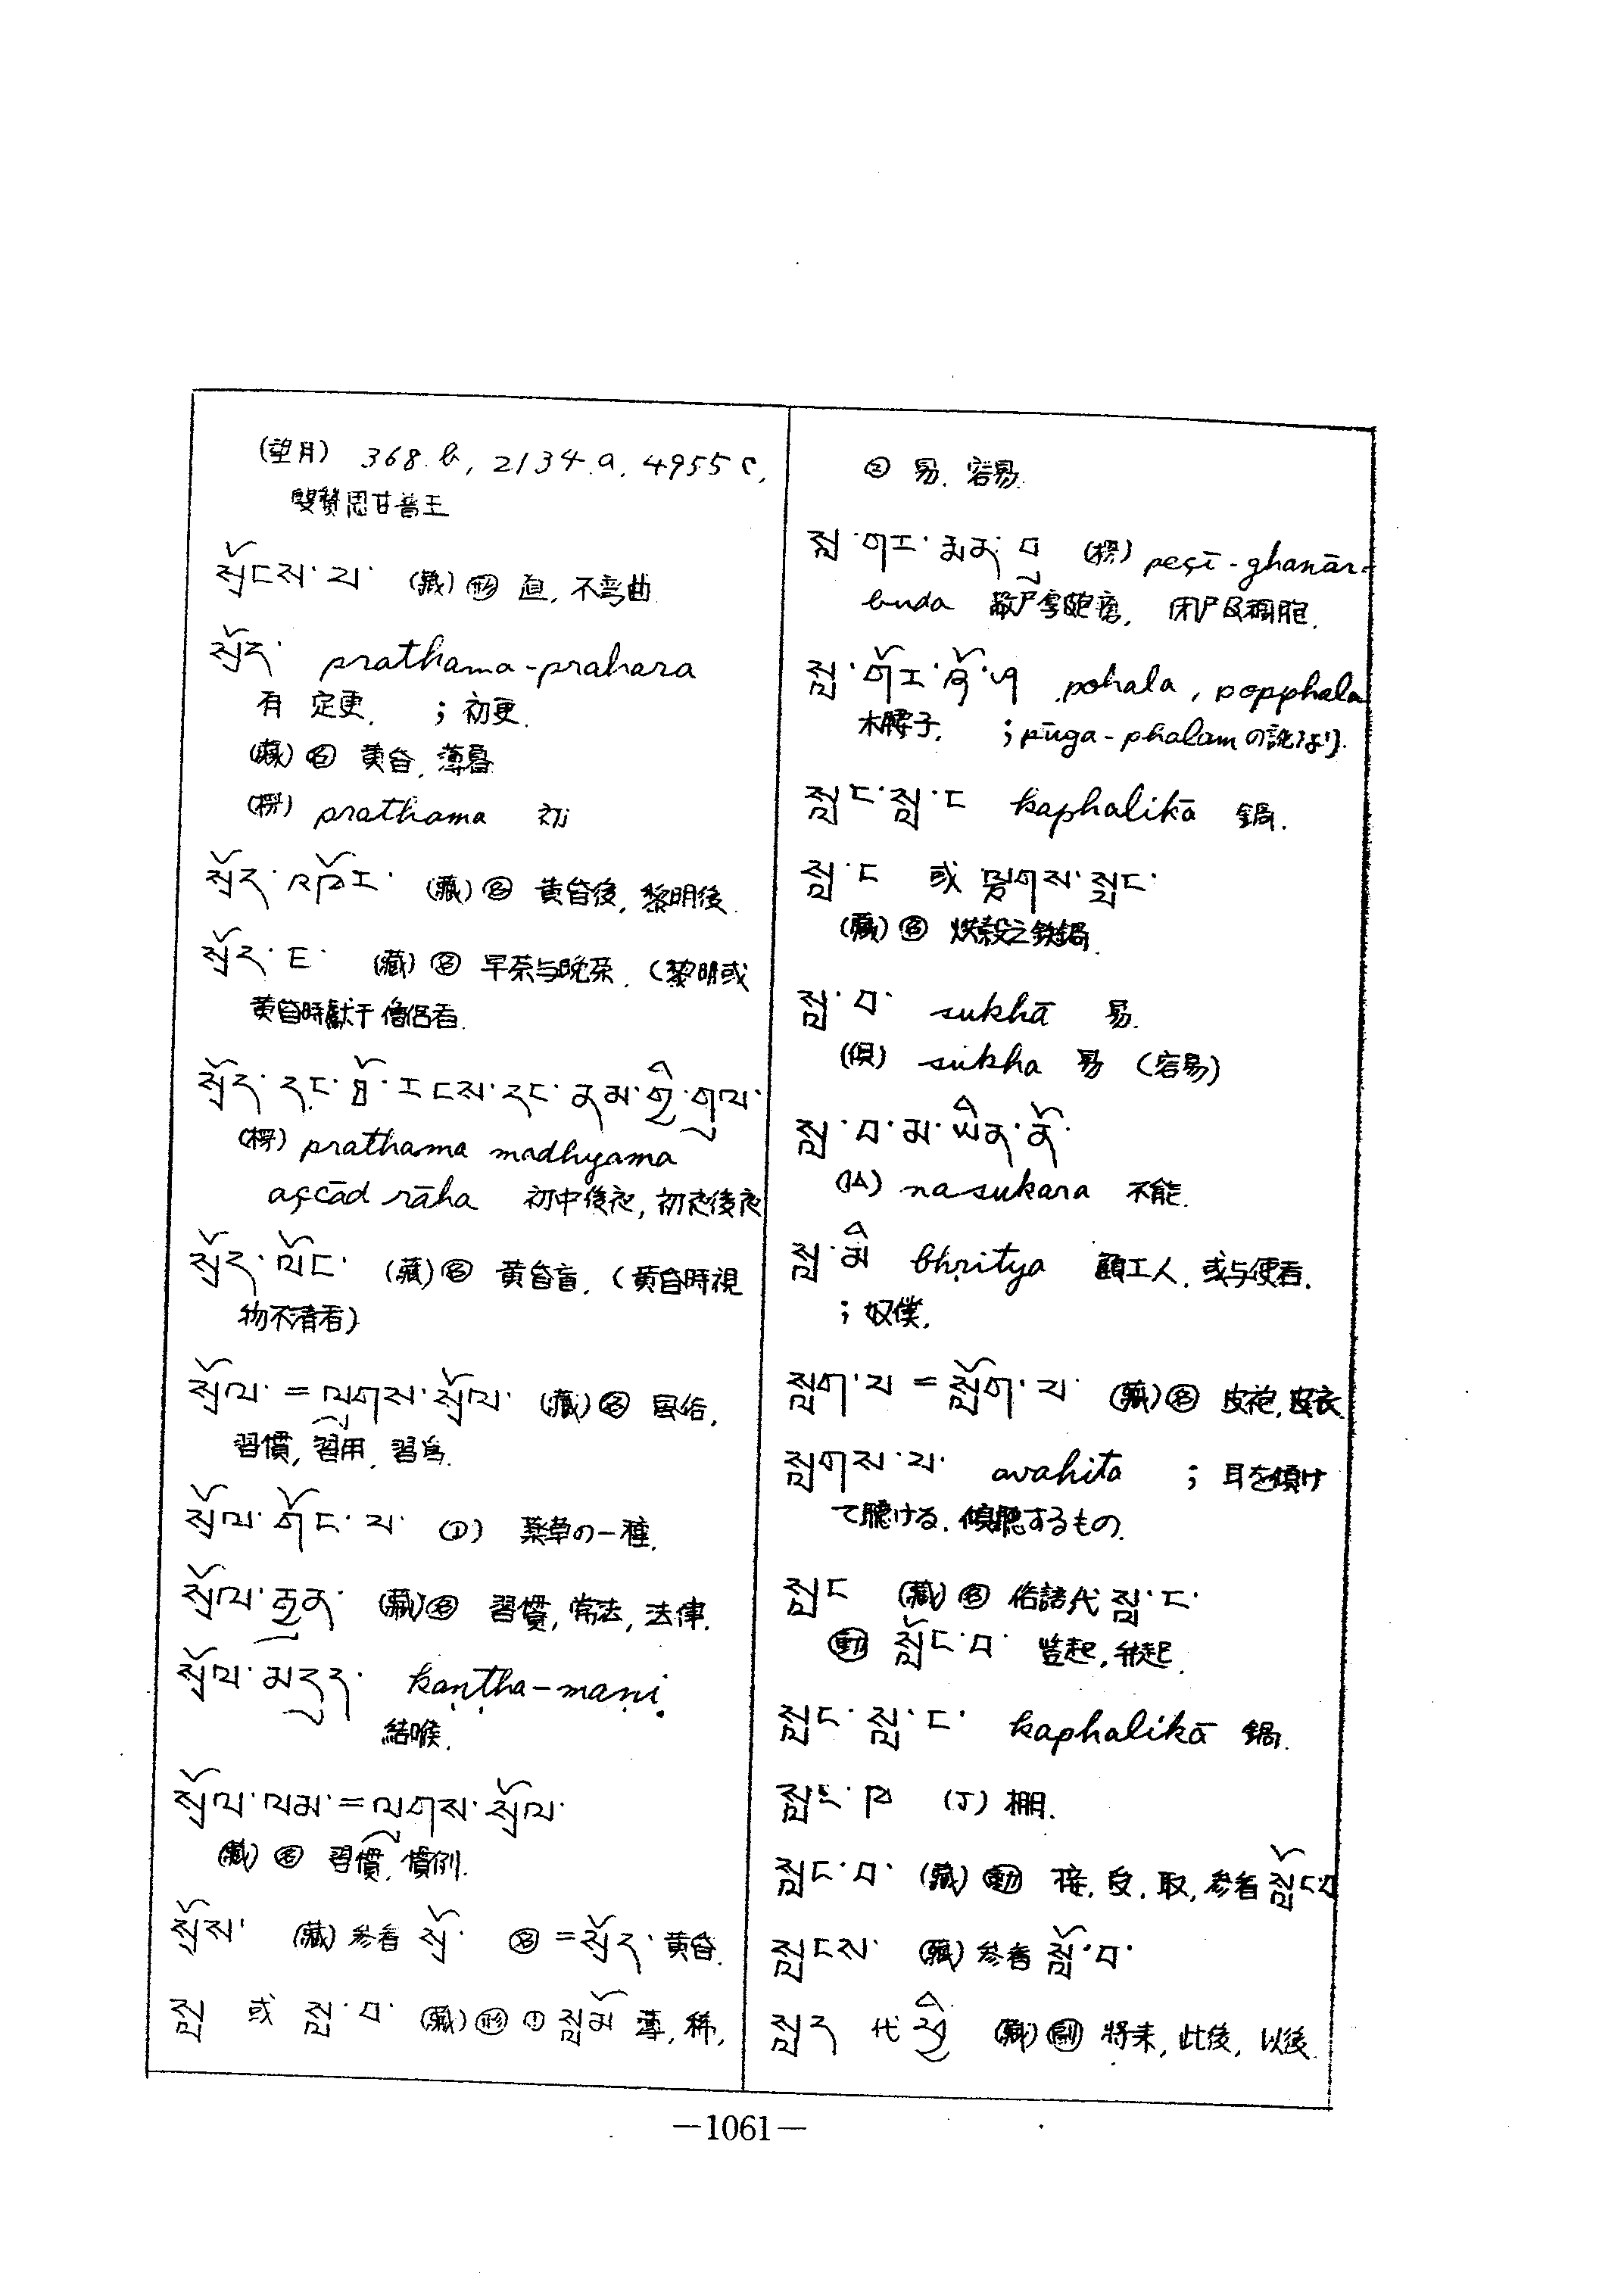 (望月) 368.b, 2134.a, 4955c,
雙賛思甘普王
སྲོངས་པ་ (蔵) 形 直, 不弯曲
སྲོད་ prathama-prahara
有 定更, ; 初更.
(蔵) 名 黄昏, 薄暮
(楞) prathama 初
སྲོད་འཁོར་ (蔵) 名 黄昏後, 黎明後.
སྲོད་ཇ་ (蔵) 名 早茶与晩茶. (黎明或
黄昏時獻于僧侶者.
སྲོད་དང་ཐོ་རངས་དང་ནམ་གྱི་གུལ་
(楞) prathama madhyama
açcād rāha 初中後夜, 初夜後夜
སྲོད་ལོང་ (蔵) 名 黄昏盲. (黄昏時視
物不清者)
སྲོལ་ = ལུགས་སྲོལ་ (蔵) 名 風俗,
習慣, 習用, 習為.
སྲོལ་གོང་པ་ (J) 薬草の一種.
སྲོལ་རྒྱུན་ (蔵) 名 習慣, 常法, 法律.
སྲོལ་མདུད་ kaṇṭha-maṇi.
結喉.
སྲོལ་ལམ་ = ལུགས་སྲོལ་
(蔵) 名 習慣, 慣例.
སྲོས་ (蔵) 参看 སྲོ་ 名 = སྲོད་ 黄昏.
སླ 或 སླ་བ་ (蔵) 形 ① སླ་མོ 薄, 稀,
② 易, 容易.
སླ་གར་མན་བུ (楞) peçī-ghanār-
buda 閉尸
སླ་གོར་ཞོ་ཤ pohala, popphala
木腰子. ; pūga-phalamの訛より.
སླང་སླ་ང kaphalikā 鍋.
སླ་ང 或 ལྕགས་སླང་
(蔵) 名 烘穀之鉄鍋.
སླ་བ་ sukhā 易.
(倶) sukha 易 (容易)
སླ་བ་མ་ཡིན་ནོ་
na sukara 不能.
སླ་མི bhṛitya 顧工人, 或与使者.
; 奴僕.
སླག་པ = སློག་པ་ (蔵) 名 皮袍, 皮衣
སླགས་པ་ avahita ; 耳を傾け
て聴ける, 傾聴するもの.
སླང (蔵) 名 俗語代 སླ་ང་
動 སློང་བ་ 豎起, 升起.
སླང་སླ་ང་ kaphalikā 鍋.
སླང་ཁ (J) 棚.
སླང་བ་ (蔵) 動 接, 受, 取, 参看 སློང་བ
སླངས་ (蔵) 参看 སློ་བ་
སླད 代 སླད་ཀྱི (蔵) 副 将来, 此後, 以後.
—1061—